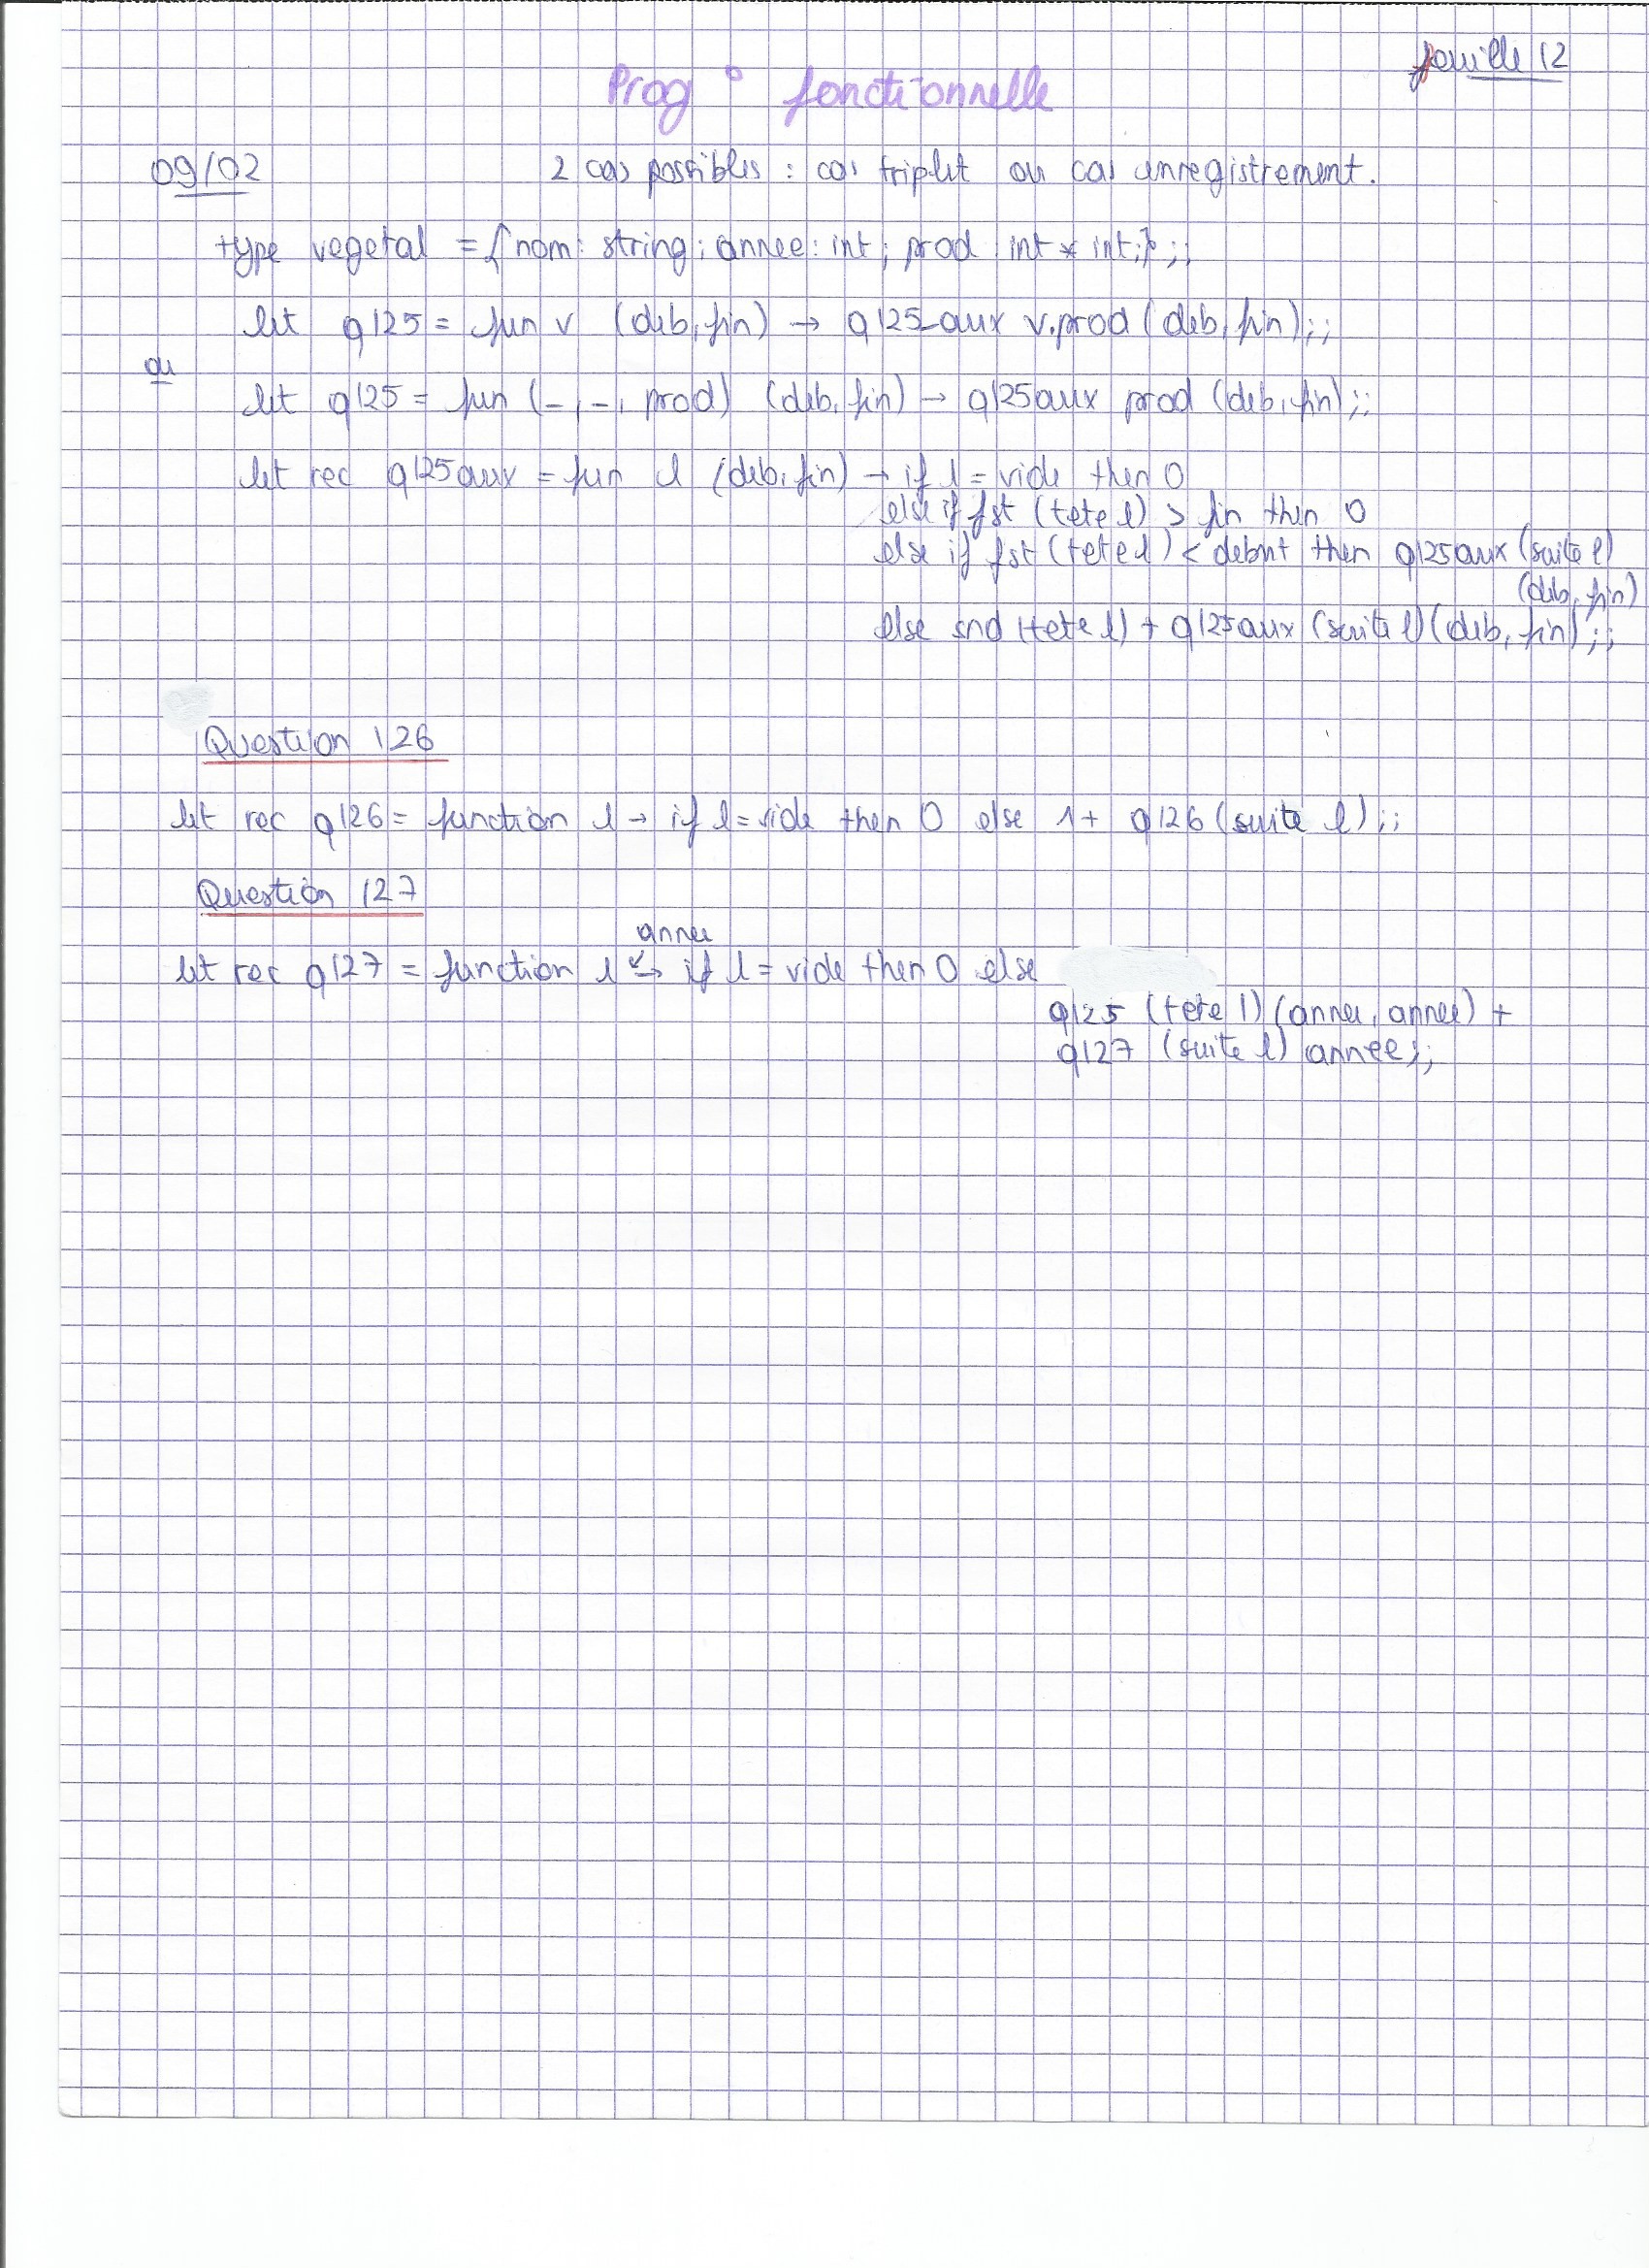 feuille 12
Prog° fonctionnelle
09/02 2 cas possibles : cas triplet ou cas enregistrement.
type vegetal = { nom: string; annee: int; prod : int * int;} ;;
let q125 = fun v (deb, fin) → q125_aux v.prod (deb, fin);;
ou
let q125 = fun (_, _, prod) (deb, fin) → q125aux prod (deb, fin);;
let rec q125aux = fun l (deb, fin) → if l = vide then 0
else if fst (tete l) > fin then 0
else if fst (tete l) < debut then q125aux (suite l)
(deb, fin)
else snd (tete l) + q125aux (suite l) (deb, fin) ;;
Question 126
let rec q126 = function l → if l = vide then 0 else 1 + q126 (suite l) ;;
Question 127
annee
let rec q127 = function l → if l = vide then 0 else
q125 (tete l) (annee, annee) +
q127 (suite l) annee;;